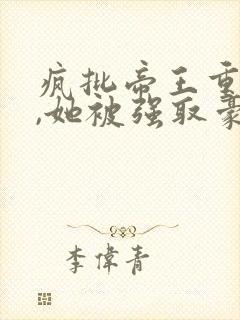 疯批帝王重
,她被强取豪
李偉青